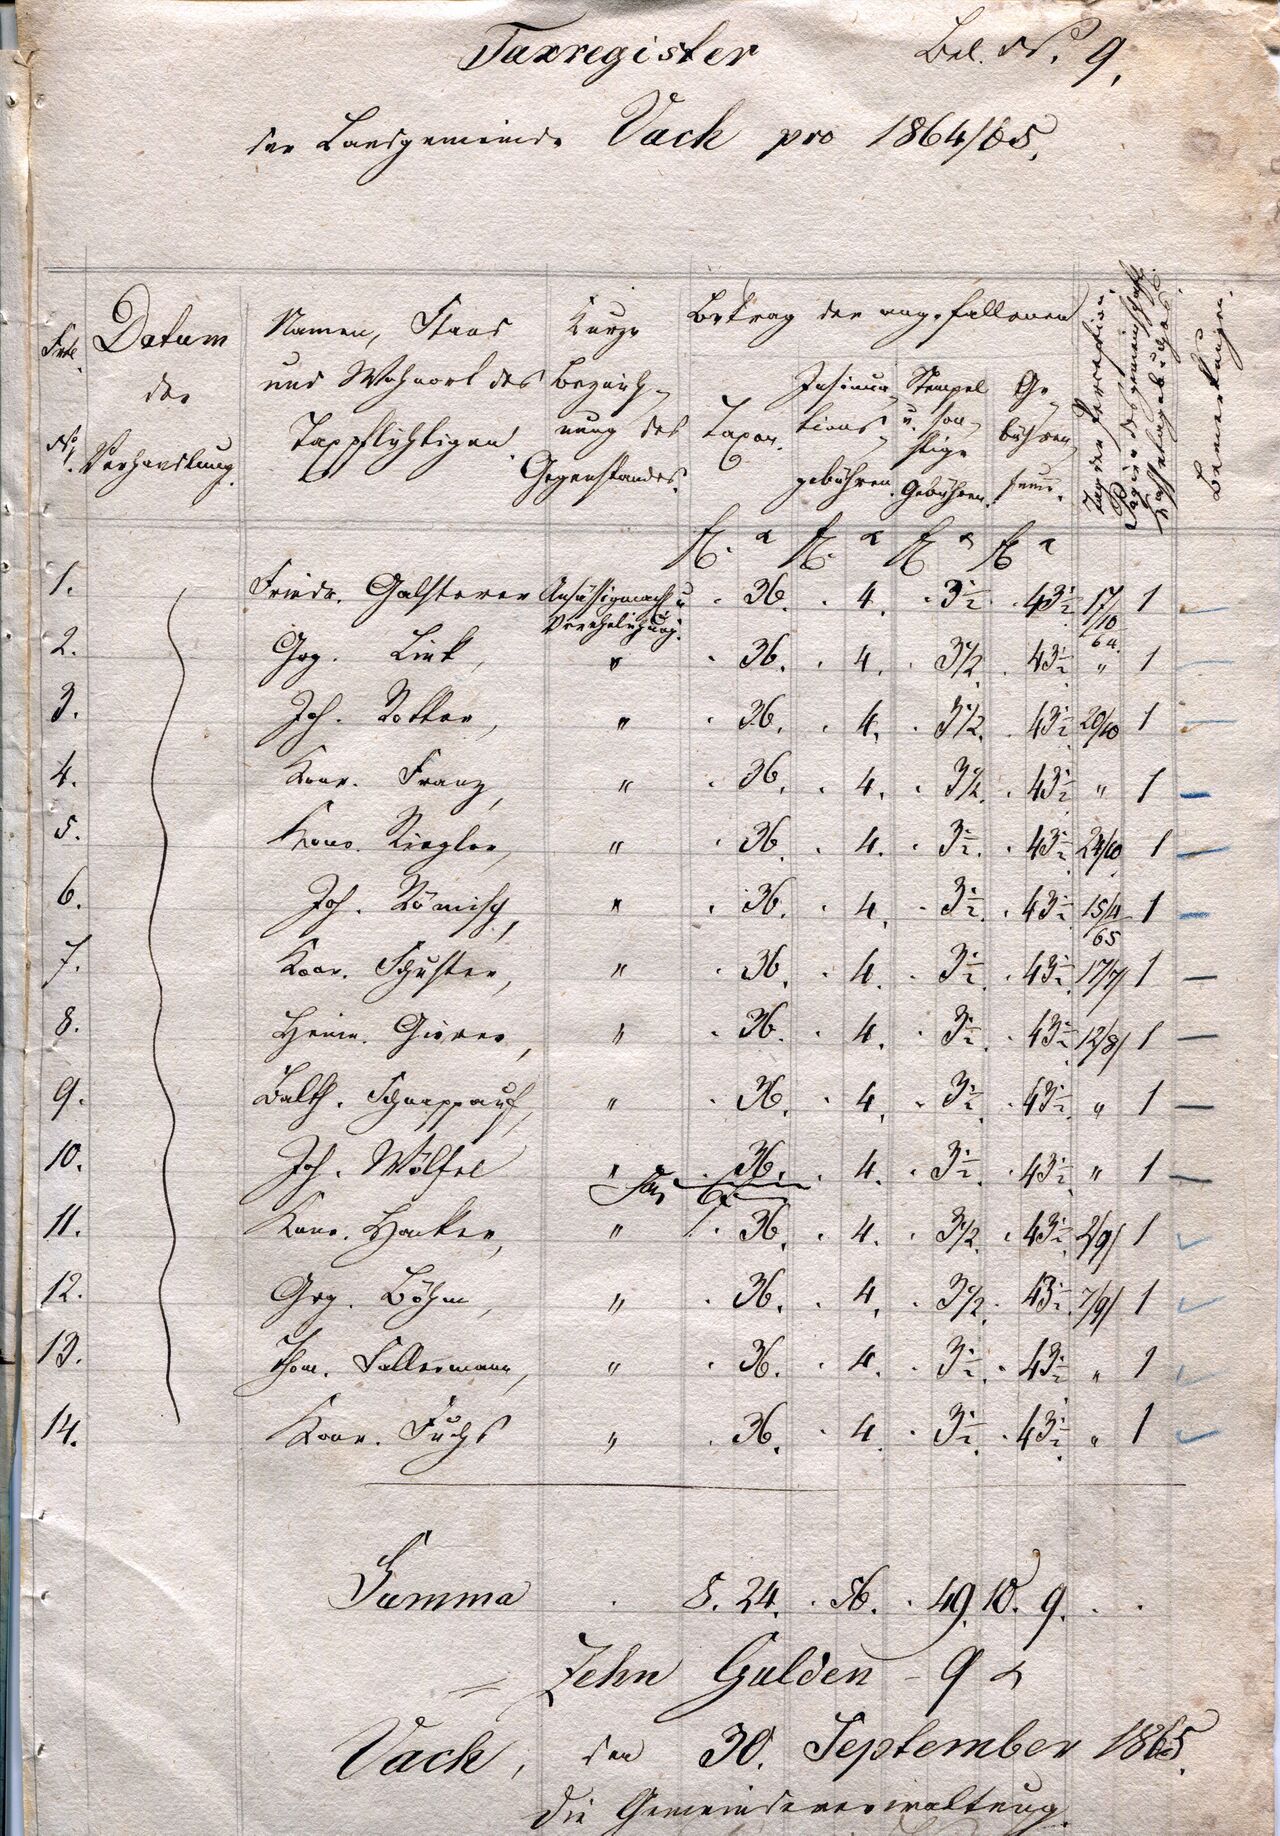 Taxregister Bel. No. 9.
der Landgemeinde Vach pro 1864/65.
Frtl. No. Datum der Verhandlung. Namen, Stand und Wohnort des Taxpflichtigen. Kurze Bezeichnung des Gegenstandes. Betrag der angefallenen Taxen. Insinuationsgebühren. Stempel u. sonstige Gebühren. Gebührensume. Tag der Perception. Bemerkungen.
fl. x fl. x fl. x fl. x
1. Friedr. Galsterer Ansässigmach. u Verehelichung. . 36. . 4. . 3½. . 43½ 17/10 64. 1
2. Grg. Link, " . 36. . 4. . 3½. . 43½ " 1
3. Joh. Rotter, " . 36. . 4. . 3½. . 43½ 20/10 1
4. Konr. Franz, " . 36. . 4. . 3½. . 43½ " 1
5. Konr. Riegler, " . 36. . 4. . 3½. . 43½ 24/10 1
6. Joh. Römisch, " . 36. . 4. . 3½. . 43½ 15/4 65 1
7. Konr. Schuster, " . 36. . 4. . 3½. . 43½ 17/7 1
8. Heinr. " . 36. . 4. . 3½. . 43½ 12/8 1
9. Balth. Schnappauf, " . 36. . 4. . 3½. . 43½ " 1
10. Joh. Wölfel " . 36. . 4. . 3½. . 43½ " 1
11. Konr. Hacker, " . 36. . 4. . 3½. . 43½ 2/9 1
12. Grg. Böhm, " . 36. . 4. . 3½. . 43½ 7/9 1
13. Thom. Fallermann, " . 36. . 4. . 3½. . 43½ " 1
14. Konr. Fuchs " . 36. . 4. . 3½. . 43½ " 1
Summa . 8. 24. . 56. . 49. 10. 9. . .
Zehn Gulden – 9 x
Vach, den 30. September 1865.
Die Gemeindeverwaltung.